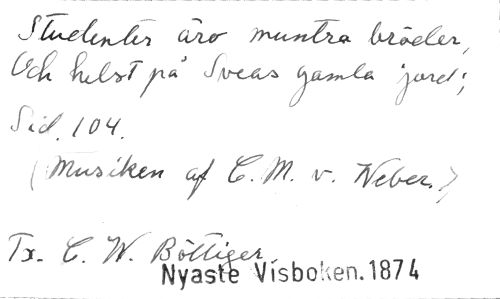 Studenter äro muntra bröder,
Och helst på Sveas gamla jord;
Sid. 104.
(Musiken af C. M. v. Weber.)
Tx. C. W. Böttiger.
Nyaste Visboken. 1874